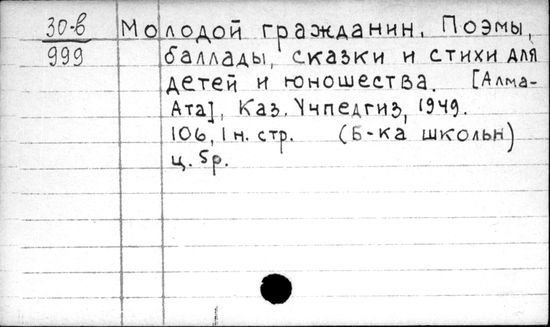 30-в Молодой гражданин. Поэмы,
999 баллады, сказки и стихи для
детей и юношества. [Алма-
Ата], Каз. Учпедгиз, 1949.
106, 1 н. стр. (Б-ка школьн)
ц. 5р.